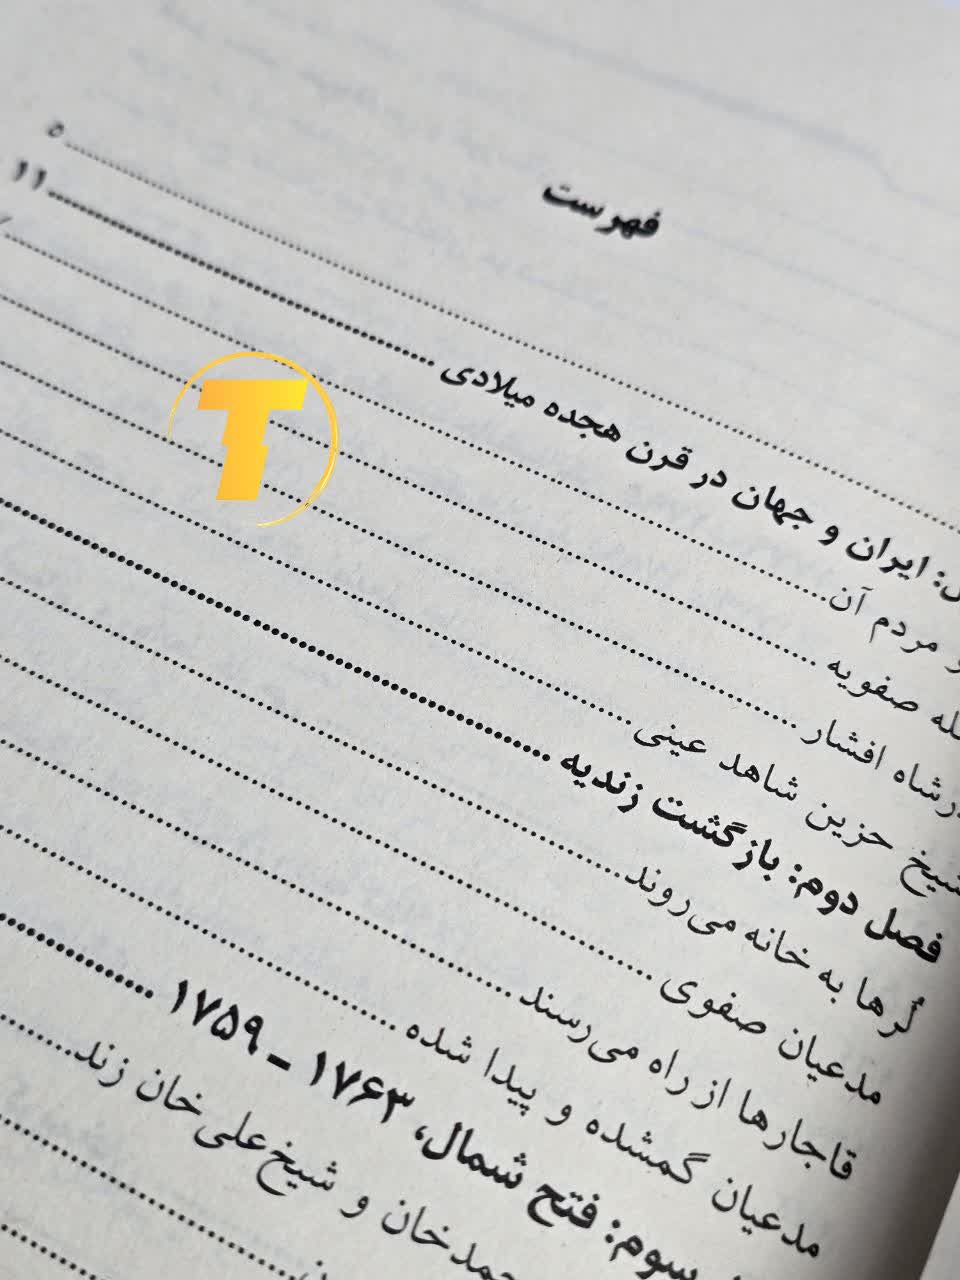 فهرست
۵
: ایران و جهان در قرن هجده میلادی ۱۱
و مردم آن
صفویه
شاه افشار
شیخ حزین شاهد عینی
فصل دوم: بازگشت زندیه
لُرها به خانه می‌روند
مدعیان صفوی
قاجارها از راه می‌رسند
مدعیان گمشده و پیدا شده
سوم: فتح شمال، ۱۷۶۳ ـ ۱۷۵۹
و شیخ‌علی‌خان زند
T